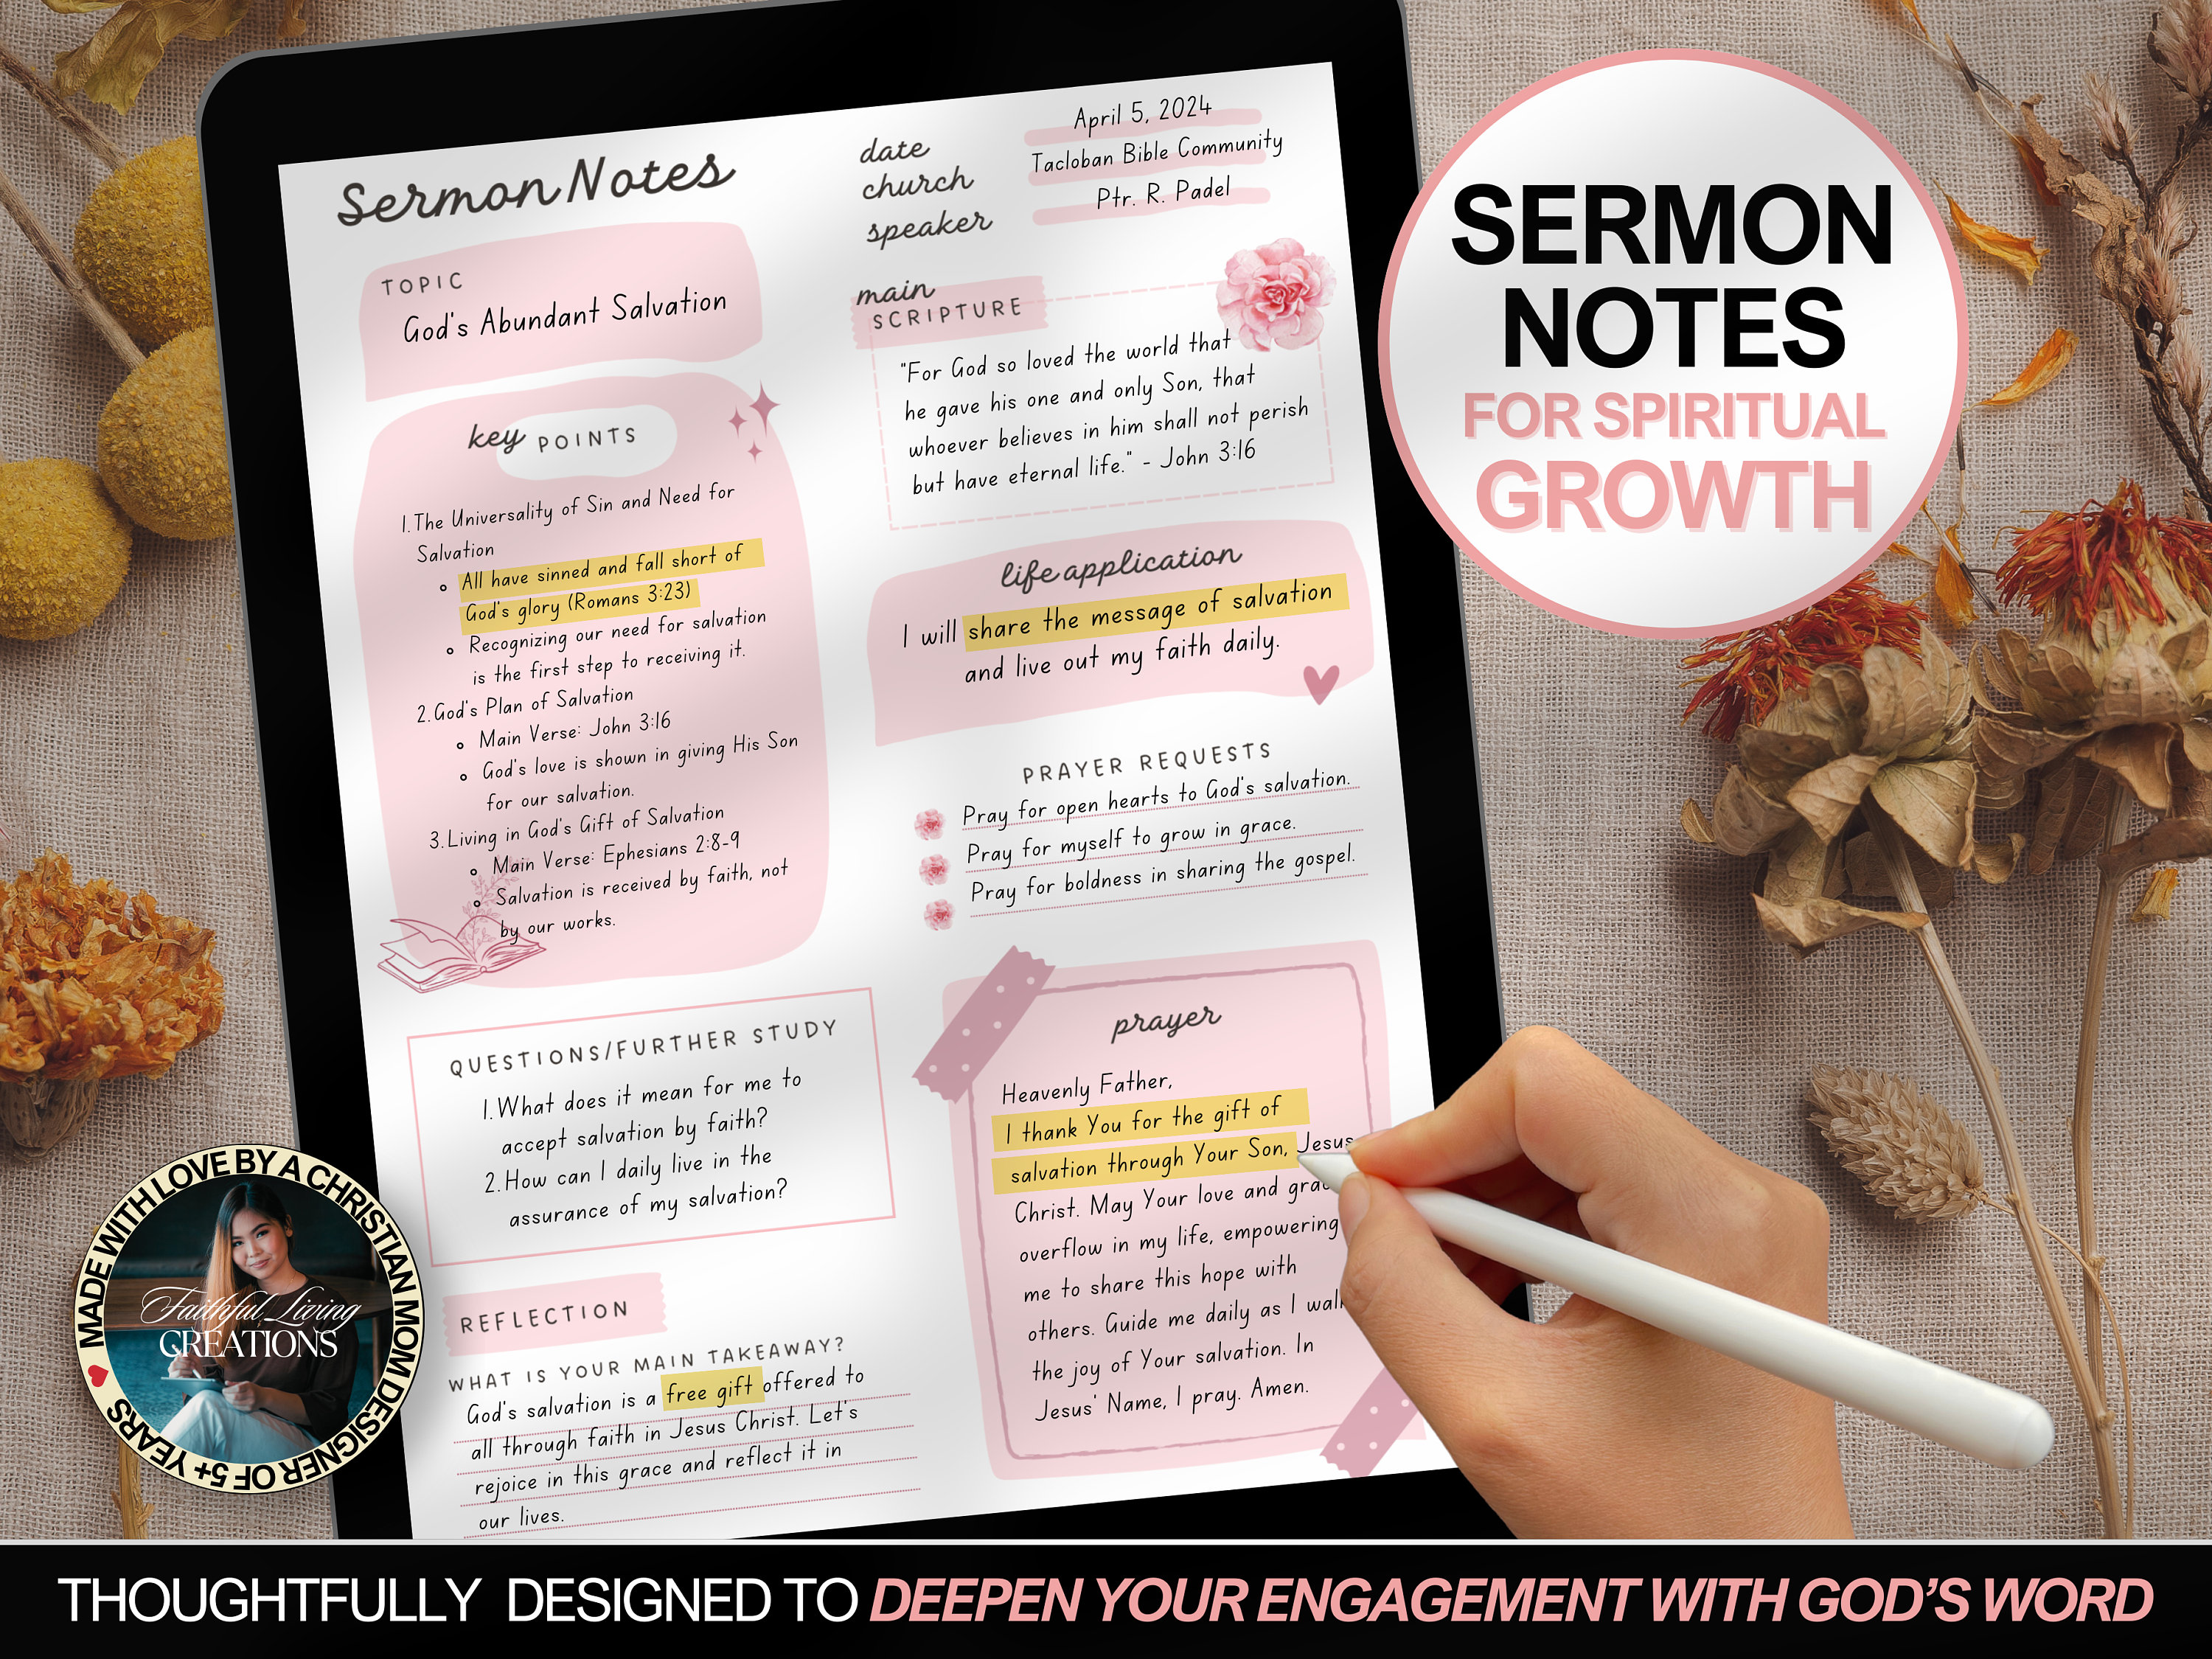 Sermon Notes
date
church
speaker
April 5, 2024
Tacloban Bible Community
Ptr. R. Padel
TOPIC
God's Abundant Salvation
key POINTS
1. The Universality of Sin and Need for
Salvation
All have sinned and fall short of
God's glory (Romans 3:23)
Recognizing our need for salvation
is the first step to receiving it.
2. God's Plan of Salvation
Main Verse: John 3:16
God's love is shown in giving His Son
for our salvation.
3. Living in God's Gift of Salvation
Main Verse: Ephesians 2:8-9
Salvation is received by faith, not
by our works.
QUESTIONS/FURTHER STUDY
1. What does it mean for me to
accept salvation by faith?
2. How can I daily live in the
assurance of my salvation?
REFLECTION
WHAT IS YOUR MAIN TAKEAWAY?
God's salvation is a free gift offered to
all through faith in Jesus Christ. Let's
rejoice in this grace and reflect it in
our lives.
main
SCRIPTURE
"For God so loved the world that
he gave his one and only Son, that
whoever believes in him shall not perish
but have eternal life." - John 3:16
life application
I will share the message of salvation
and live out my faith daily.
PRAYER REQUESTS
Pray for open hearts to God's salvation.
Pray for myself to grow in grace.
Pray for boldness in sharing the gospel.
prayer
Heavenly Father,
I thank You for the gift of
salvation through Your Son, Jesus
Christ. May Your love and
overflow in my life, empowering
me to share this hope with
others. Guide me daily as I
the joy of Your salvation. In
Jesus' Name, I pray. Amen.
SERMON
NOTES
FOR SPIRITUAL
GROWTH
MADE WITH LOVE BY A CHRISTIAN MOM DESIGNER OF 5+ YEARS
Faithful Living
CREATIONS
THOUGHTFULLY DESIGNED TO DEEPEN YOUR ENGAGEMENT WITH GOD'S WORD